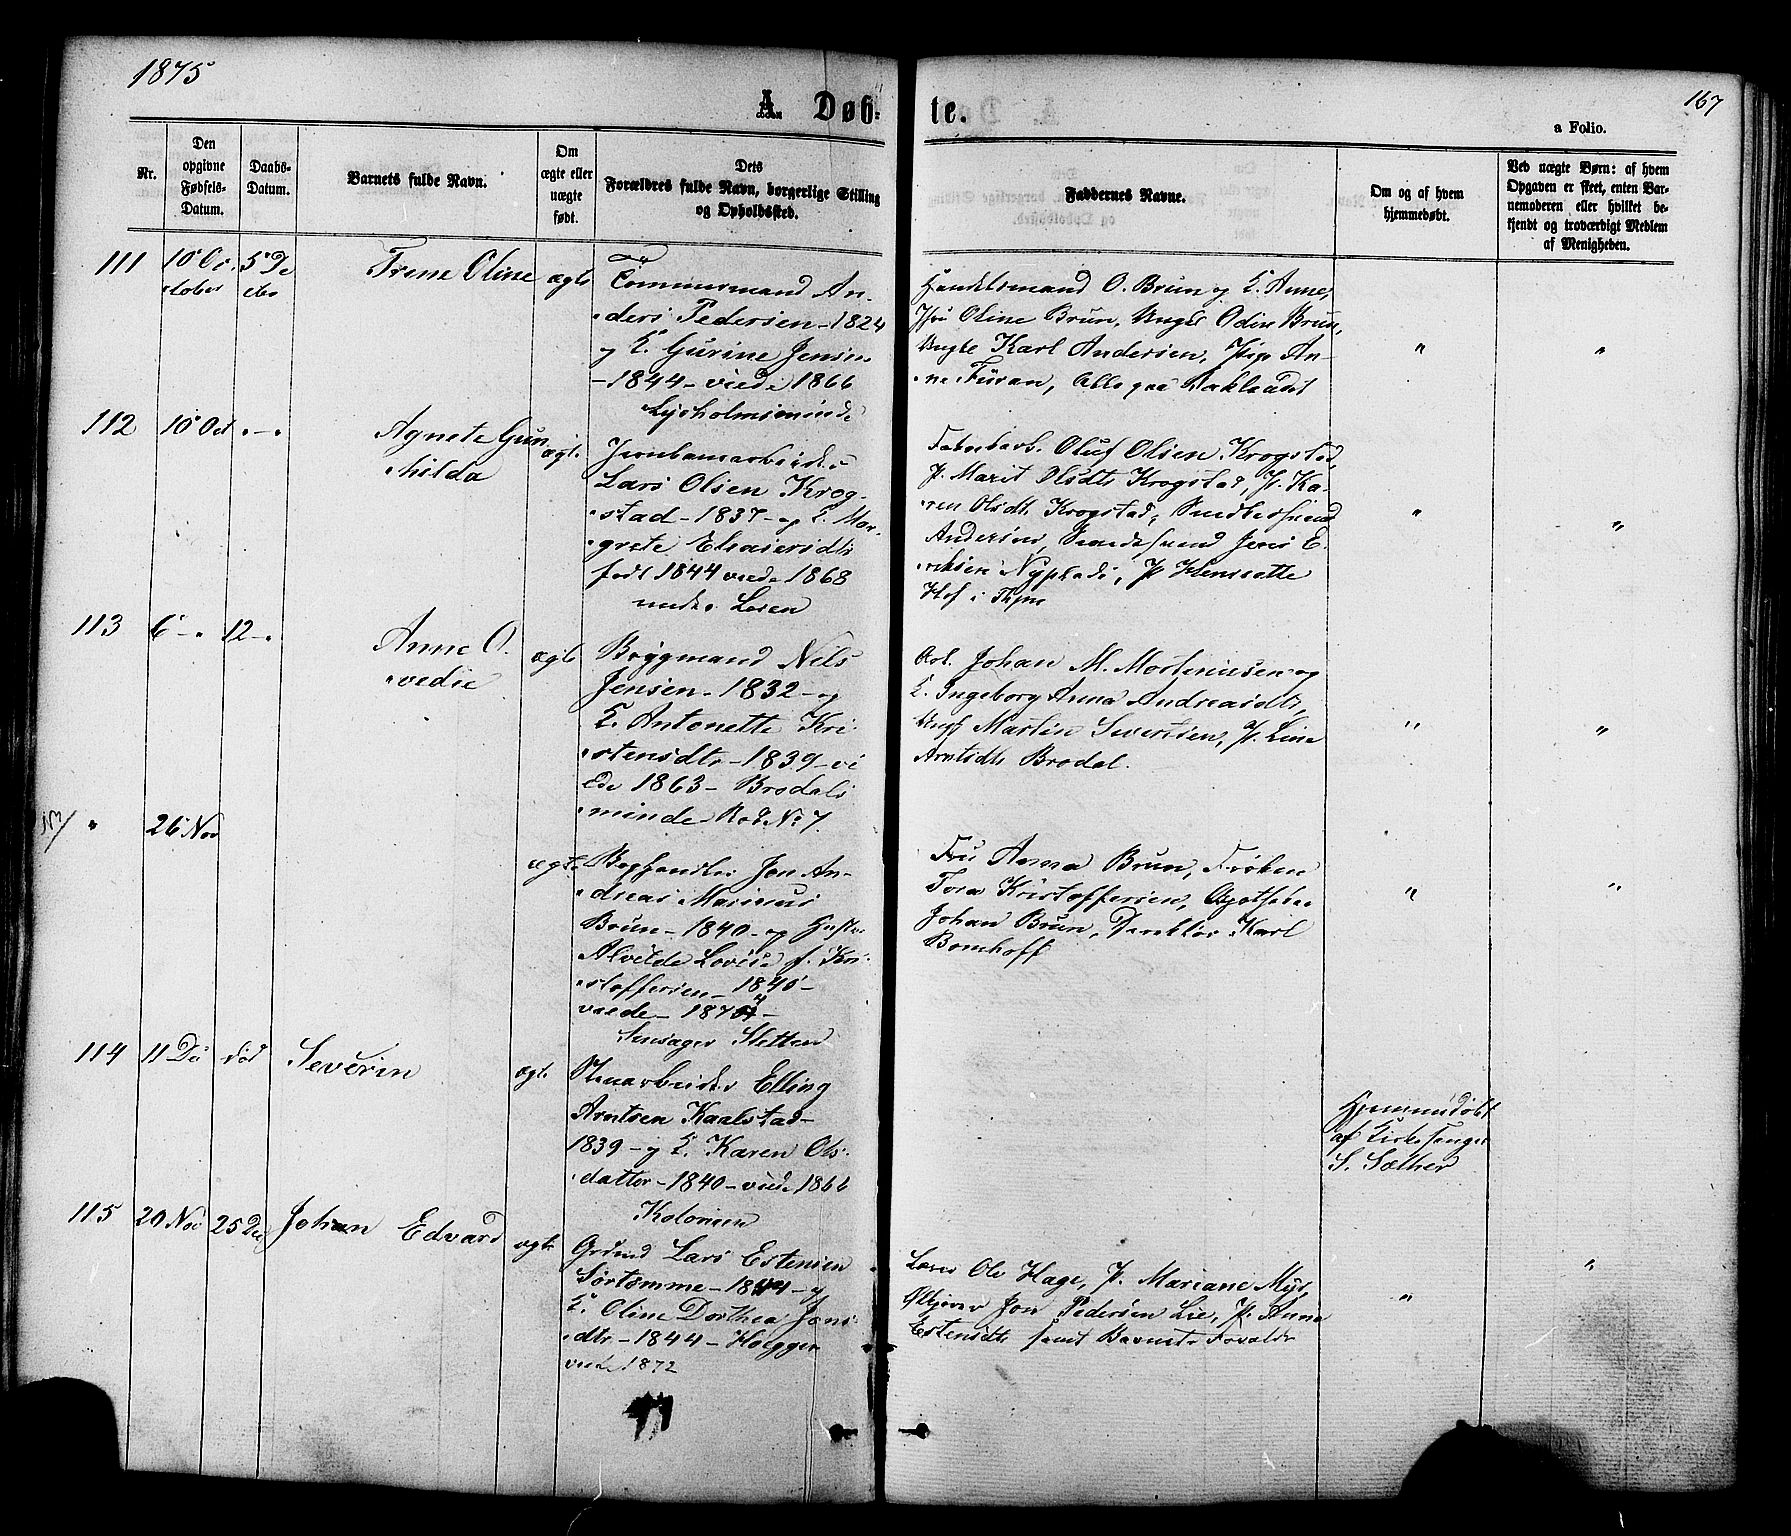 1875
167
A. Døb-
te.
a Folio.
Nr.
Den
opgivne
Fødsels-
Datum.
Daabs-
Datum.
Barnets fulde Navn.
Om
ægte eller
uægte
født.
Dets
Forældres fulde Navn, borgerlige Stilling
og Opholdssted.
Faddernes Navne.
Om og af hvem
hjemmedøbt.
Ved uægte Børn: af hvem
Opgaven er skeet, enten Bar-
nemoderen eller hvilket be-
kjendt og troværdigt Medlem
af Menigheden.
111 10 Oc 5 De Trine Oline ægte
tober cbr
Tømmermand An-
ders Pedersen - 1824
og E. Gurine Jensen
- 1844 - viede 1866
Lysholmsminde
Handelsmand O. Brun og E. Anne,
Oline Brun, Ungk Odin Brun,
Ungk Karl Andersen, Pige An-
ne Furan, Alle paa Baklandet
" "
112 10 Oct " - " Agnete Gun ægte
hilda
Jernbanearbeider
Lars Olsen Krog-
stad - 1837 - og E. Mar-
grete Eliasersdtr
født 1844 viede 1868
under Leren
Fabrikarb. Oluf Olsen Krogstad,
P. Marit Olsdtr Krogstad, P. Ka-
ren Olsdtr Krogstad, Smedsvend
Andersen, Smedsvend Jens E-
riksen P. Henriette
Hof i
" "
113 6 - " 12 - " Anne O. ægte
vedie
Bryggmand Nils
Jensen - 1832 - og
E. Antonette Kri
stensdtr - 1839 - vi
ede 1863 - Brodals
minde Rod. No 7.
Arb. Johan M. Mortensen og
E. Ingeborg Anna Andreasdtr,
Ungk Martin Sivertsen, P. Line
Arntsdtr Brodal.
" "
" 26 Nov
ægte
Boghandler Jon An-
dreas Marinus
Brun - 1840 - og Hustru
Alvilde Lovise f. Kri-
stoffersen - 1845 -
viede - 1874 -
Sletten
Fru Anna Brun, Frøken
Tora Kristoffersen, Apotheker
Johan Brun, Direktør Karl
Bomhoff
" "
114 11 De død Severin ægte
Stenarbeider Elling
Arntsen Kaalstad -
1839 - og E. Karen Ols-
datter - 1840 - viede 1866
Kolonien
Hjemmedøbt
af Kirkesanger
S. Sæther
115 20 Nov 25 Dec Johan Edvard ægte
Grdmd Lars Estensen
Sørtømme - 1844 - og
E. Oline Dorthea Jons
dtr - 1844 - Hoeggen
viede 1872
Lærer Ole Hage, P. Mariane Myr,
Jon Pedersen Lie, P. Anne
Estensdtr samt Barnets Forældre
" "